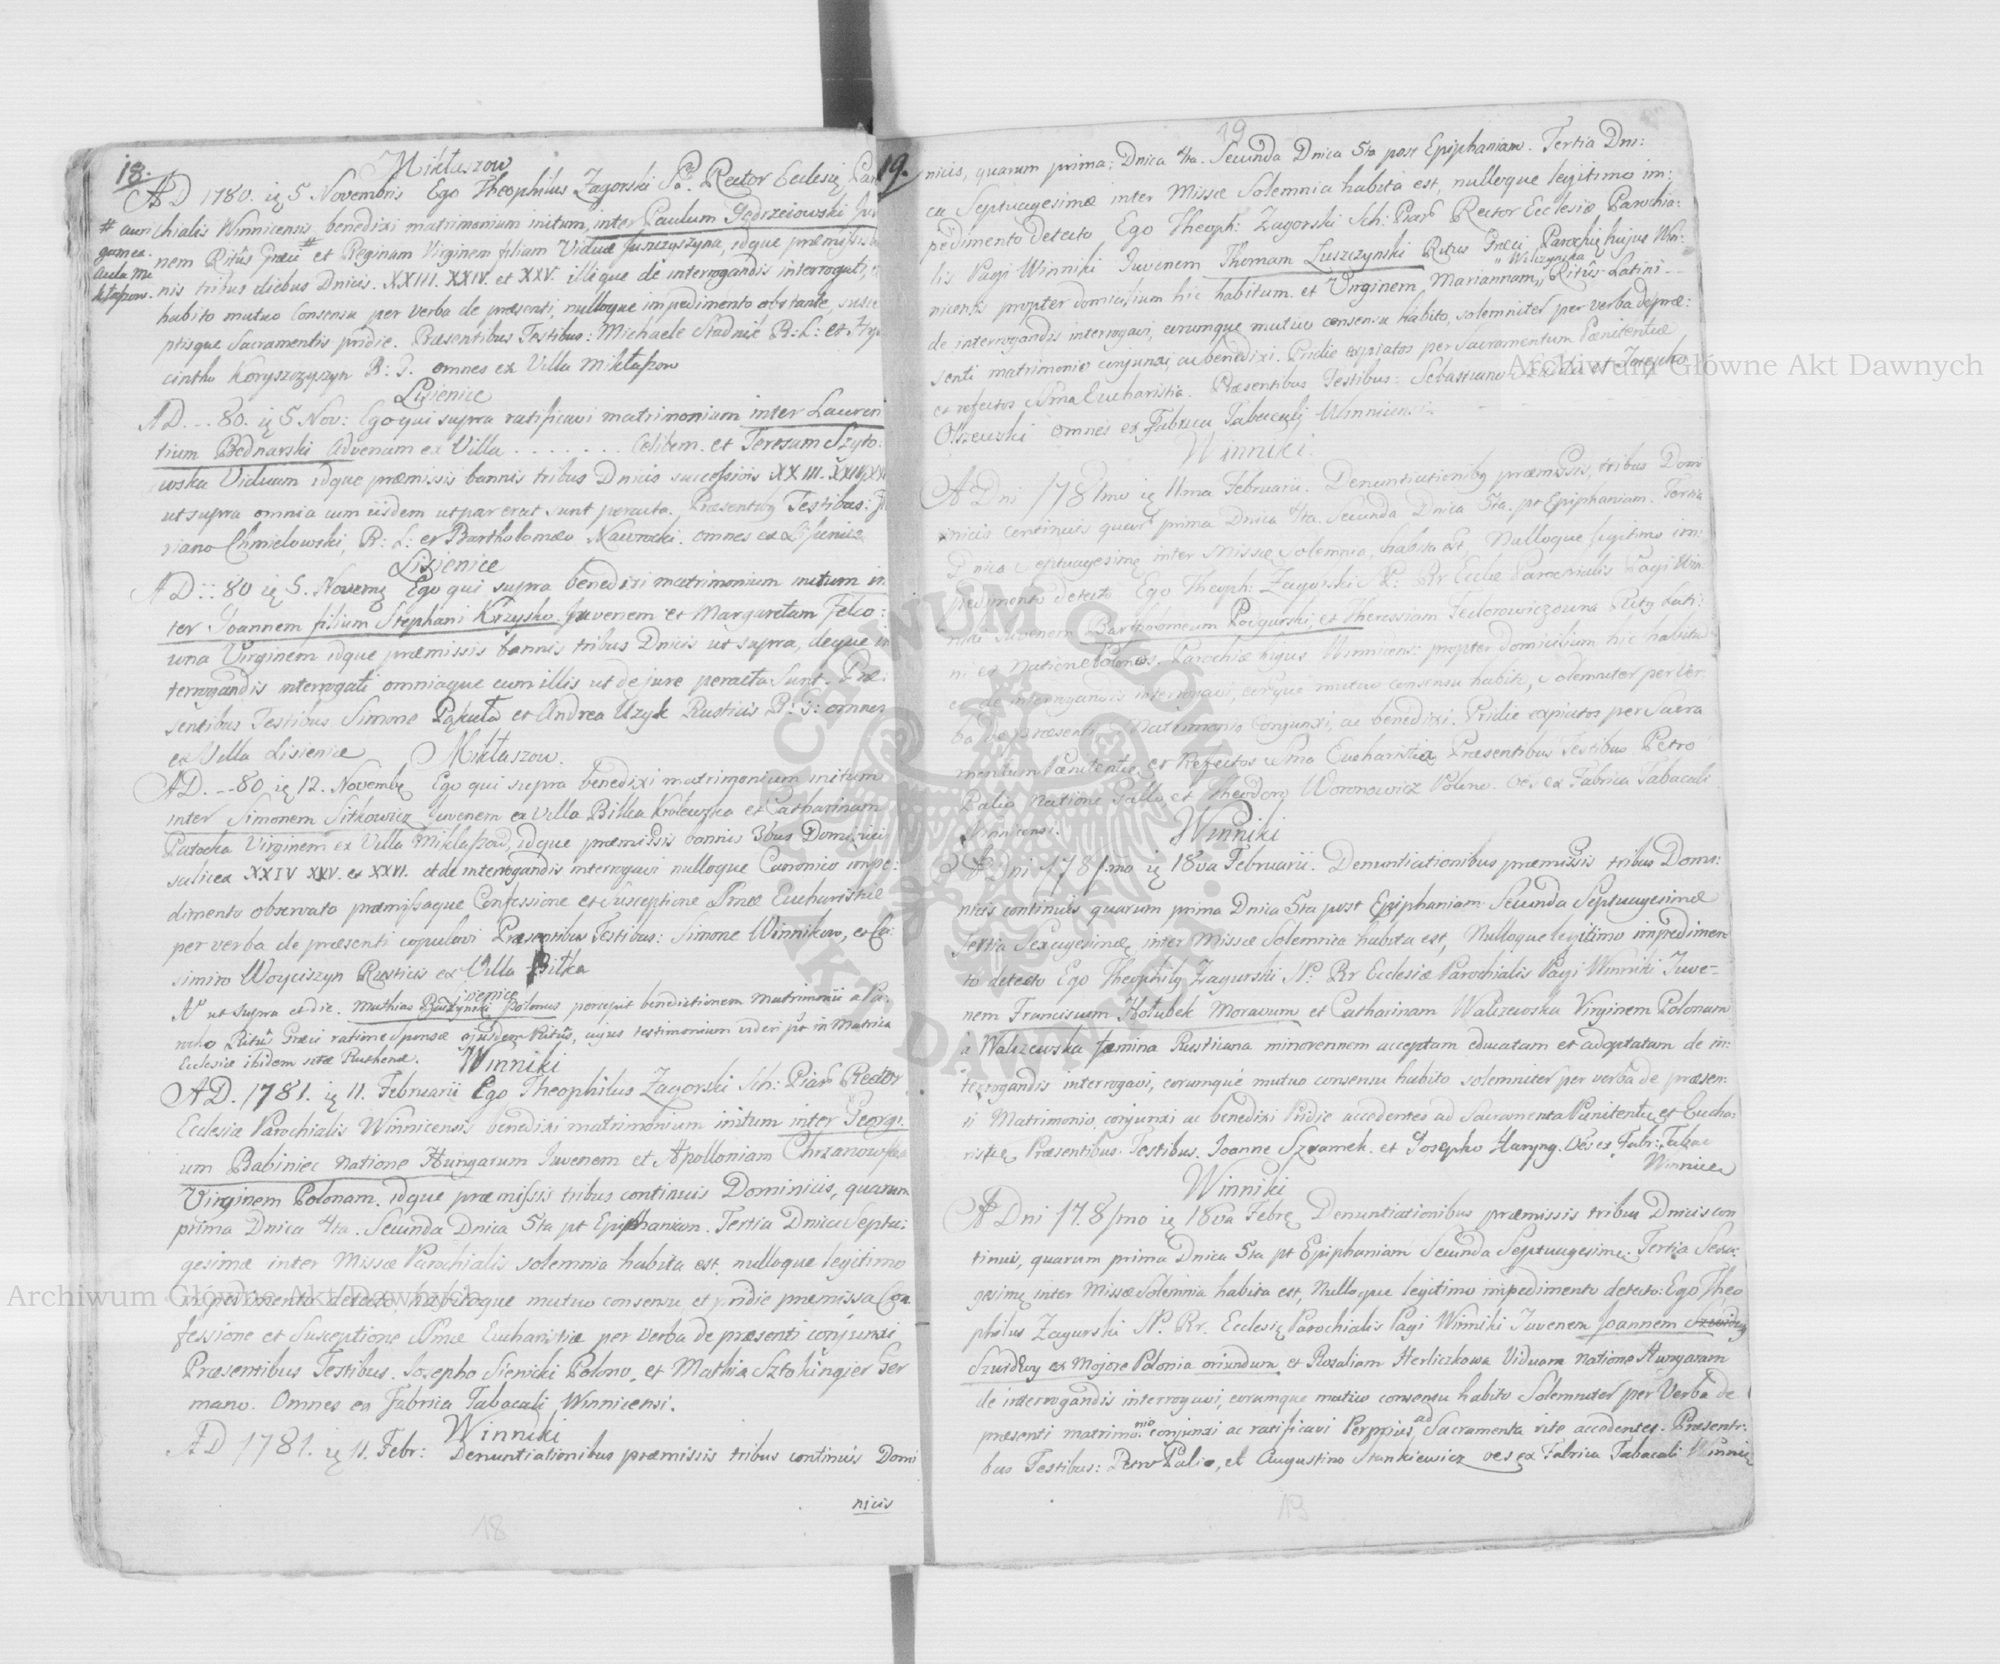 18.
Miktaszow
AD 1780. ię 5 Novembris Ego Theophilus Zagorski Rector Ecclesię
chialis Winnicensis benedixi matrimonium initum, inter Paulum Jędrzeiowski
# auri
gam ex
aula Mi
ktaszow.
nem Ritus Græci # et Reginam Virginem filiam Viduæ Juszczyszyna, idque præmissis
nis tribus diebus Dnicis. XXIII. XXIV. et XXV. illique de interrogandis interrogati,
habito mutuo Consensu per verba de præsenti, nulloque impedimento obstante,
ptisque Sacramentis pridie. Præsentibus Testibus: Michaele Stadnik R: L: et
cintho Koryszczyszyn R: G. omnes ex Villa Miktaszow
Lisienice
AD. -- 80. ię 5 Nov: Ego qui supra ratificavi matrimonium inter Lauren
tium Bednarski Advenam ex Villa . . . . . . . Cælibem. et Teresam Szyto:
wska Viduam idque præmissis bannis tribus Dnicis successivis XXIII. XXIV
ut supra omnia cum iisdem ut par erat sunt peracta. Præsentibus Testibus:
riano Chmielowski, R: L: et Bartholomæo Nawrocki. omnes ex Lisienice
Lisienice
AD:: 80 ię 5. Novemb Ego qui supra benedixi matrimonium initum in
ter Joannem filium Stephani Krzysko Juvenem et Margaretam Felco:
una Virginem idque præmissis bannis tribus Dnicis ut supra, deque in
terrogandis interrogati omniaque cum illis ut de jure peracta sunt. Præ:
sentibus Testibus Simone Pąkuta et Andrea Uzyk Rusticis R: G: omnes
ex Villa Lisienice
Miktaszow.
AD. -- 80 ię 12. Novembr Ego qui supra benedixi matrimonium initum
inter Simonem Sitkowicz Juvenem ex Villa Bilka Krolewska et Catharinam
Patocka Virginem ex Villa Miktaszow, idque præmissis bannis 3bus Dominicis
scilicet XXIV XXV. et XXVI. et de interrogandis interrogavi nulloque Canonico impe:
dimento observato præmissaque Confessione et susceptione Smæ Eucharistiæ
per verba de præsenti copulavi Præsentibus Testibus: Simone Winnikow, et Ca:
simiro Woyciszyn Rusticis ex Villa Bilka
Lisienice
A° ut supra et die. Mathias Polonus percepit benedictionem Matrimonii a Pa:
rocho Ritus Græci ratione Sponsæ ejusdem Ritus, cujus testimonium videri pt in Matrica
Ecclesiæ ibidem sitæ Ruthenæ.
Winniki
AD. 1781. ię 11. Februarii Ego Theophilus Zagorski Sch: Piar Rector
Ecclesiæ Parochialis Winnicensis benedixi matrimonium initum inter Georgi:
um Babiniec natione Hungarum Juvenem et Apolloniam Chrzanowska
Virginem Polonam. idque præmissis tribus continuis Dominicis, quarum
prima Dnica 4ta. Secunda Dnica 5ta pt Epiphaniam. Tertia Dnica Septua:
gesimæ inter Missæ Parochialis solemnia habita est, nulloque legitimo
impedimento detecto, habitoque mutuo consensu, et pridie præmissa Con
fessione et Susceptione Smæ Eucharistiæ per verba de præsenti conjunxi
Præsentibus Testibus. Josepho Sienicki Polono, et Mathia Sztokingier Ger
mano. Omnes ex Fabrica Tabacali Winnicensi.
Winniki
AD 1781. ię 11. Febr: Denuntiationibus præmissis tribus continuis Domi
nicis
18
19
19.
nicis, quarum prima: Dnica 4ta. Secunda Dnica 5ta post Epiphaniam. Tertia Dni:
ca Septuagesimæ inter Missæ Solemnia habita est, nulloque legitimo im:
pedimento detecto Ego Theoph: Zagorski Sch: Piar Rector Ecclesiæ Parochia:
lis Pagi Winniki Juvenem Thomam Luszczynski Ritus Græci, Parochię hujus Win:
nicensis propter domicilium hic habitum. et Virginem Mariannam, Wilczynska Ritus Latini
de interrogandis interrogavi, eorumque mutuo consensu habito, solemniter per verba de præ:
senti matrimonio conjunxi, ac benedixi. Pridie expiatos per Sacramentum Pænitentiæ
et refectos Sma Eucharistia. Præsentibus Testibus: Sebastiano et Josepho
Olszewski omnes ex Fabrica Tabacali Winnicensi.
Winniki.
A Dni 1781mo ię 11ma Februarii. Denuntiationibus præmissis, tribus Domi
nicis continuis quar prima Dnica 4ta. Secunda Dnica 5ta. pt Epiphaniam. Tertia
Dnica Septuagesimę inter Missæ solemnia, habita est, Nulloque legitimo im:
pedimento detecto Ego Theoph: Zagurski Rr Ecclæ Parochialis Pagi Win:
niki Juvenem Bartholomeum Podgurski, et Theressiam Fedorowiczowna Ritus Lati:
ni et Natione Polonos. Parochiæ hujus Winnicens: propter domicilium hic habitu
et de interrogandis interrogavi, eorque mutuo consensu habito, solemniter per ver:
ba de præsenti Matrimonio Conjunxi, ac benedixi. Pridie expiatos per Sacra
mentum Pænitentiæ, et Refectos Sma Eucharistia Præsentibus Testibus Petro
Palio Natione Gallo, et Theodoro Woronowicz Polono. oes ex Fabrica Tabacali
Winnicensi.
Winniki
A Dni 1781mo ię 18va Februarii. Denuntiationibus præmissis tribus Domi:
nicis continuis, quarum prima Dnica 5ta post Epiphaniam Secunda Septuagesimæ
Tertia Sexagesimæ, inter Missæ Solemnia habita est, Nulloque legitimo impedimen
to detecto Ego Theophilus Zagurski Rr Ecclesiæ Parochialis Pagi Winniki Juve-
nem Franciscum Hołubek Moravum et Catharinam Walczewska Virginem Polonam
a Walczewska fæmina Rusticana minorennem acceptam educatam et adoptatam de in:
terrogandis interrogavi, eorumque mutuo consensu habito solemniter per verba de præsen:
ti Matrimonio conjunxi ac benedixi Pridie accedentes ad Sacramenta Pænitentiæ et Eucha:
ristiæ Præsentibus Testibus. Joanne Szramek. et Josepho Haryng. Oes ex Fabr: Tabac
Winnicen
Winniki
A Dni 1781mo ię 18va Febr Denuntiationibus præmissis tribus Dnicis con
tinuis, quarum prima Dnica 5ta pt Epiphaniam Secunda Septuagesimæ. Tertia Sexa:
gesimę inter Missæ Solemnia habita est, Nulloque legitimo impedimento detecto: Ego Theo
philus Zagurski Rr. Ecclesię Parochialis Pagi Winniki Juvenem Joannem
ex Majore Polonia oriundum et Rosaliam Herliczkowa Viduam natione Hungaram
de interrogandis interrogavi, eorumque mutuo consensu habito Solemniter per Verba de
præsenti matrimo:nio conjunxi ac ratificavi ad Sacramenta rite accedentes. Præsenti:
bus Testibus: Petro Palio, et Augustino Stankiewicz oes ex Fabrica Tabacali Winnic
19
Archiwum Główne Akt Dawnych
Archiwum Główne Akt Dawnych
ARCHIWUM GŁÓWNE AKT DAWNYCH